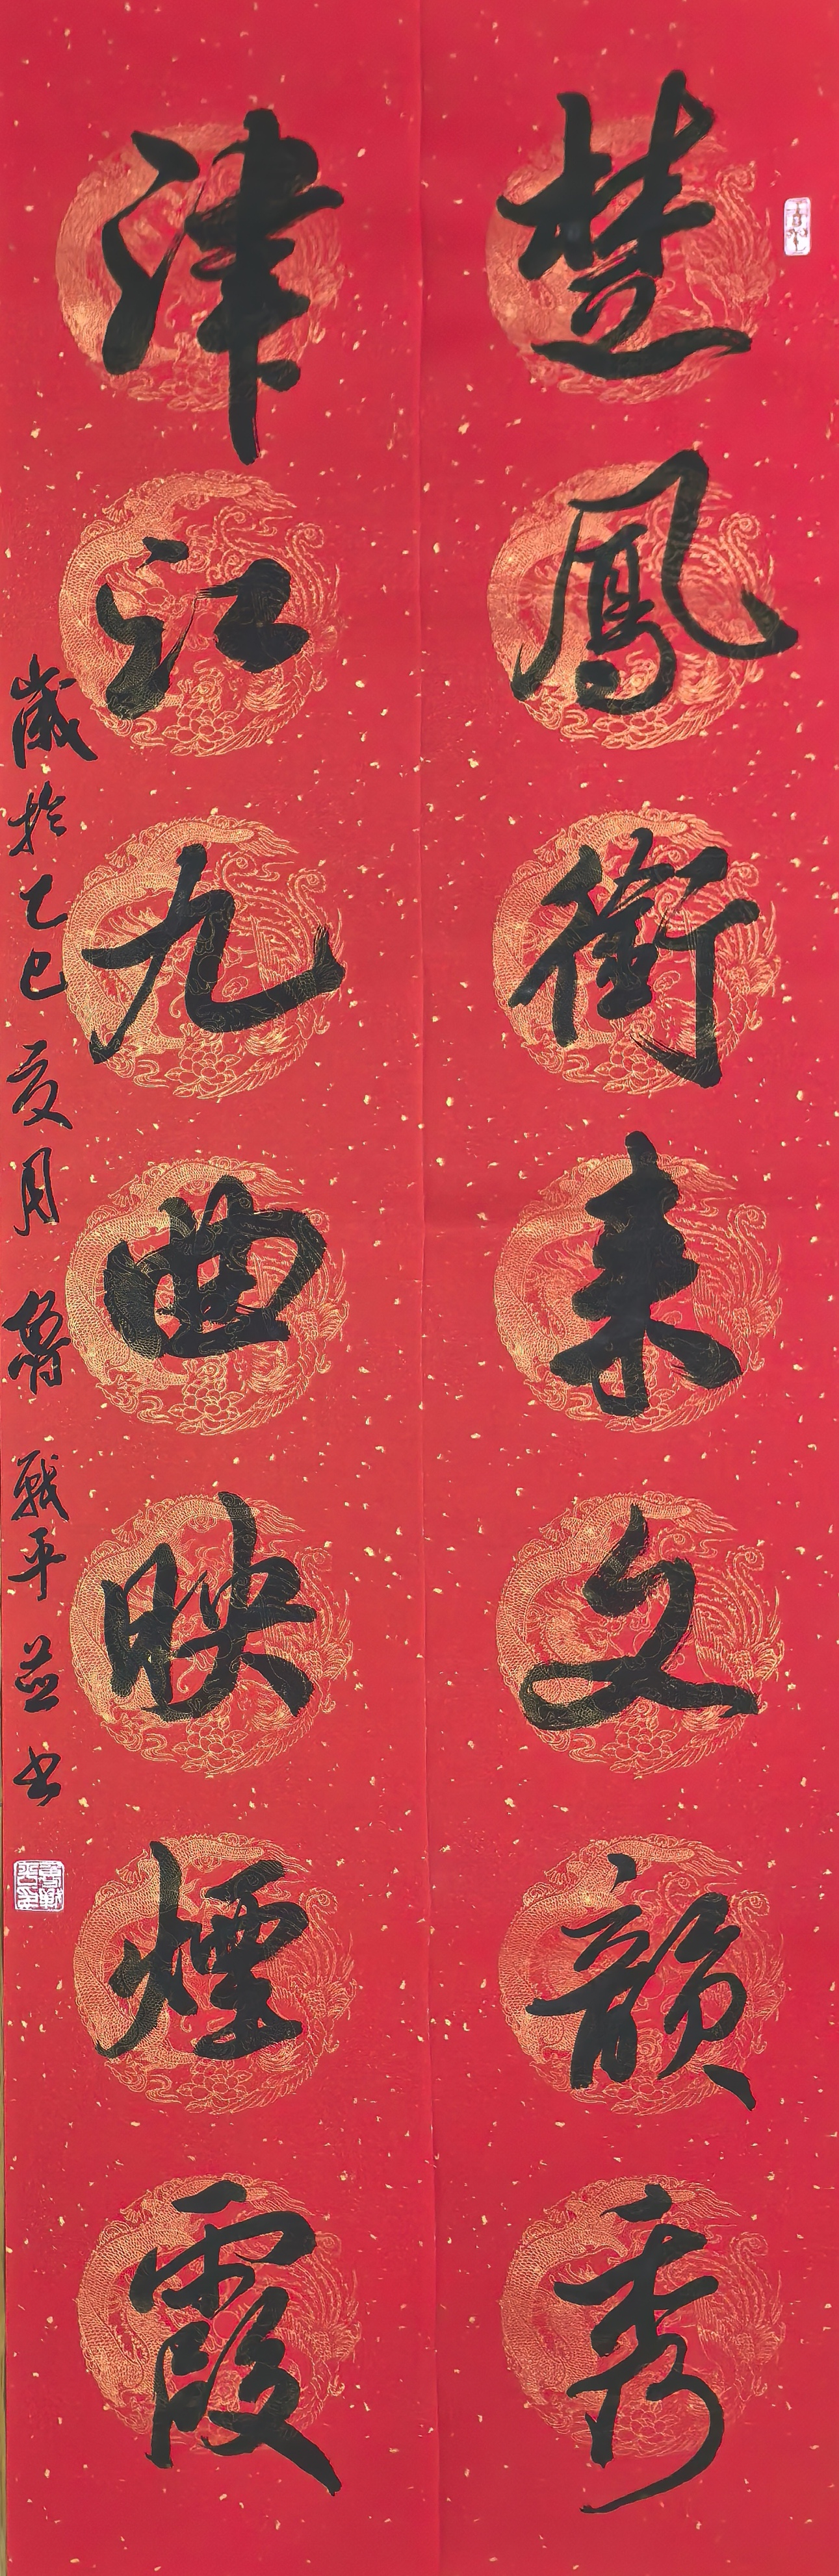 楚鳳銜来文韻秀
津江九曲映煙霞
歲於乙巳夏月魯戰平並书